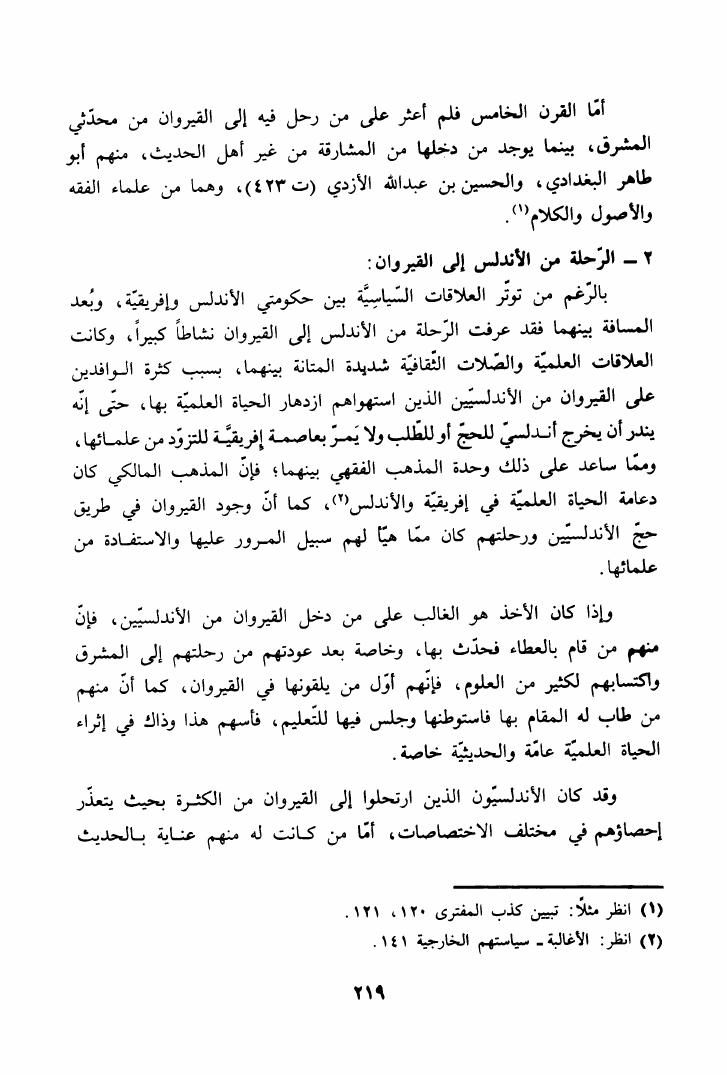 أمّا القرن الخامس فلم أعثر على من رحل فيه إلى القيروان من محدّثي
المشرق، بينما يوجد من دخلها من المشارقة من غير أهل الحديث، منهم أبو
طاهر البغدادي، والحسين بن عبدالله الأزدي (ت ٤٢٣)، وهما من علماء الفقه
والأصول والكلام(١).
٢ ـ الرّحلة من الأندلس إلى القيروان:
بالرّغم من توتّر العلاقات السّياسِيَّة بين حكومتي الأندلس وإفريقيّة، وبُعد
المسافة بينهما فقد عرفت الرّحلة من الأندلس إلى القيروان نشاطاً كبيراً، وكانت
العلاقات العلميّة والصّلات الثّقافيّة شديدة المتانة بينهما، بسبب كثرة الـوافدين
على القيروان من الأندلسيّين الذين استهواهم ازدهار الحياة العلميّة بها، حتّى إنّه
يندر أن يخرج أنـدلسيّ للحجّ أو للطّلب ولا يَمـرّ بعاصمـة إفريقيَّـة للتزوّد من علمـائها،
وممّا ساعد على ذلك وحدة المذهب الفقهي بينهما؛ فإنّ المذهب المالكي كان
دعامة الحياة العلميّة في إفريقيّة والأندلس(٢)، كما أنّ وجود القيروان في طريق
حجّ الأندلسيّين ورحلتهم كان ممّا هيّأ لهم سبيل المـرور عليها والاستفـادة من
علمائها.
وإذا كان الأخذ هو الغالب على من دخل القيروان من الأندلسيّين، فإنّ
منهم من قام بالعطاء فحدّث بها، وخاصة بعد عودتهم من رحلتهم إلى المشرق
واكتسابهم لكثير من العلوم، فإنّهم أوّل من يلقونها في القيروان، كما أنّ منهم
من طاب له المقام بها فاستوطنها وجلس فيها للتّعليم، فأسهم هذا وذاك في إثراء
الحياة العلميّة عامّة والحديثيّة خاصة.
وقد كان الأندلسيّون الذين ارتحلوا إلى القيروان من الكثـرة بحيث يتعذّر
إحصاؤهم في مختلف الاختصاصات، أمّا من كـانت له منهم عنـاية بـالحديث
(١) انظر مثلًا: تبيين كذب المفترى ١٢٠، ١٢١.
(٢) انظر: الأغالبة ـ سياستهم الخارجية ١٤١.
٢١٩